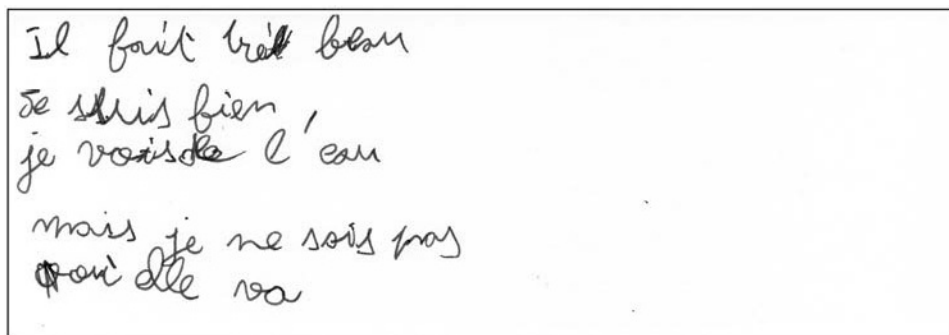 Il fait très beau
Je suis bien,
je vois de l'eau
mais je ne sais pas
où elle va